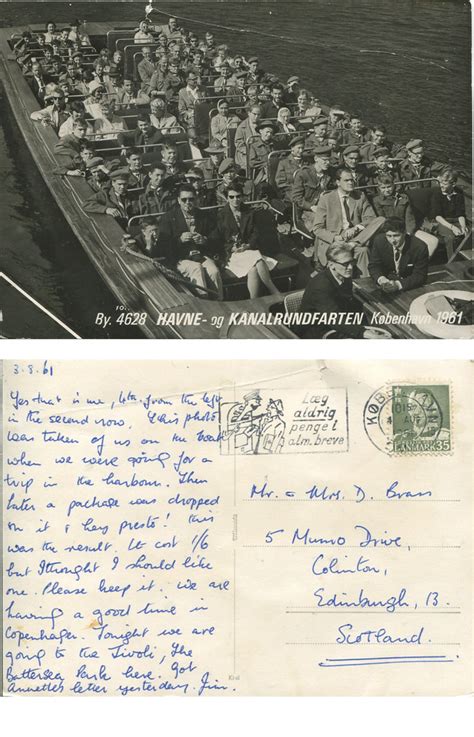 10.
By. 4628 HAVNE- og KANALRUNDFARTEN København 1961
3.8.61
Yes that is me, 4th from the left
in the second row. This photo
was taken of us on the boat
when we were going for a
trip in the harbour. Then
later a package was dropped
on it & hey presto! this
was the result. It cost 1/6
but I thought I should like
one. Please keep it. We are
having a good time in
Copenhagen. Tonight we are
going to the Tivoli, The
Battersea Park here. Got
Annette's letter yesterday. Jim.
Læg
aldrig
penge i
alm. breve
KØBENHAVN
DANMARK 35
Mr. & Mrs. D. Brass
5 Munro Drive,
Colinton,
Edinburgh, 13.
Scotland.